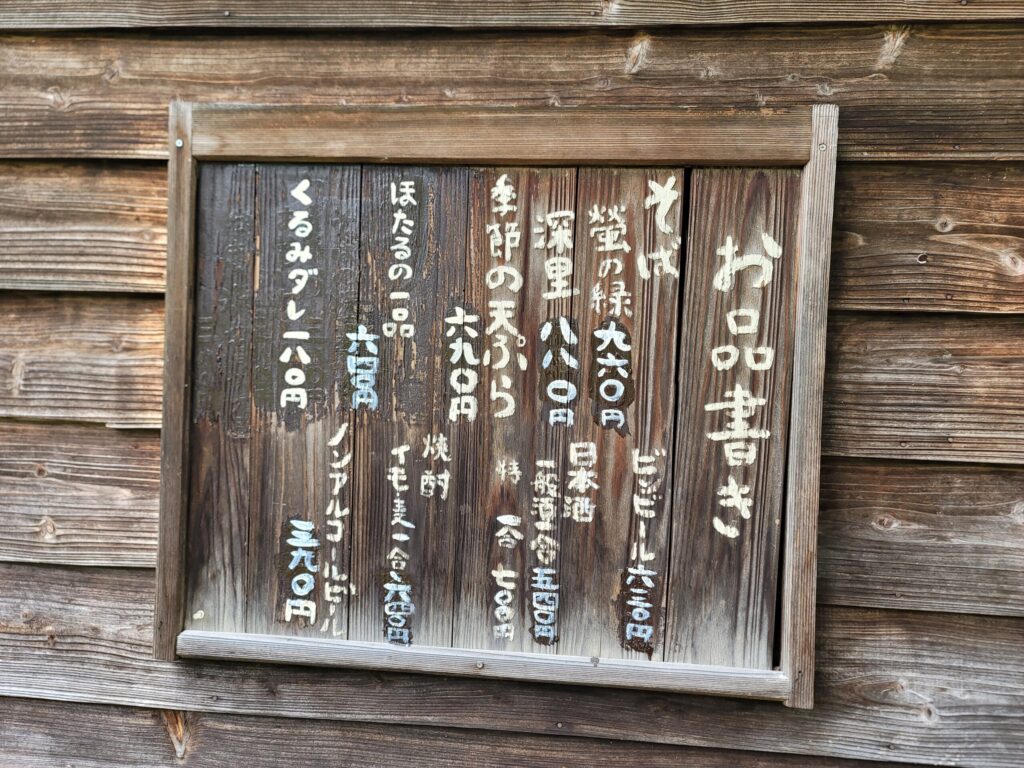 お品書き
そば
螢の緑 九六〇円
深里 八八〇円
季節の天ぷら
六九〇円
ほたるの一品
六四〇円
くるみダレ 一八〇円
ビンビール 六三〇円
日本酒
一般酒一合 五四〇円
特 一合 七〇〇円
焼酎
イモ・麦 一合、六四〇円
ノンアルコールビール
三九〇円